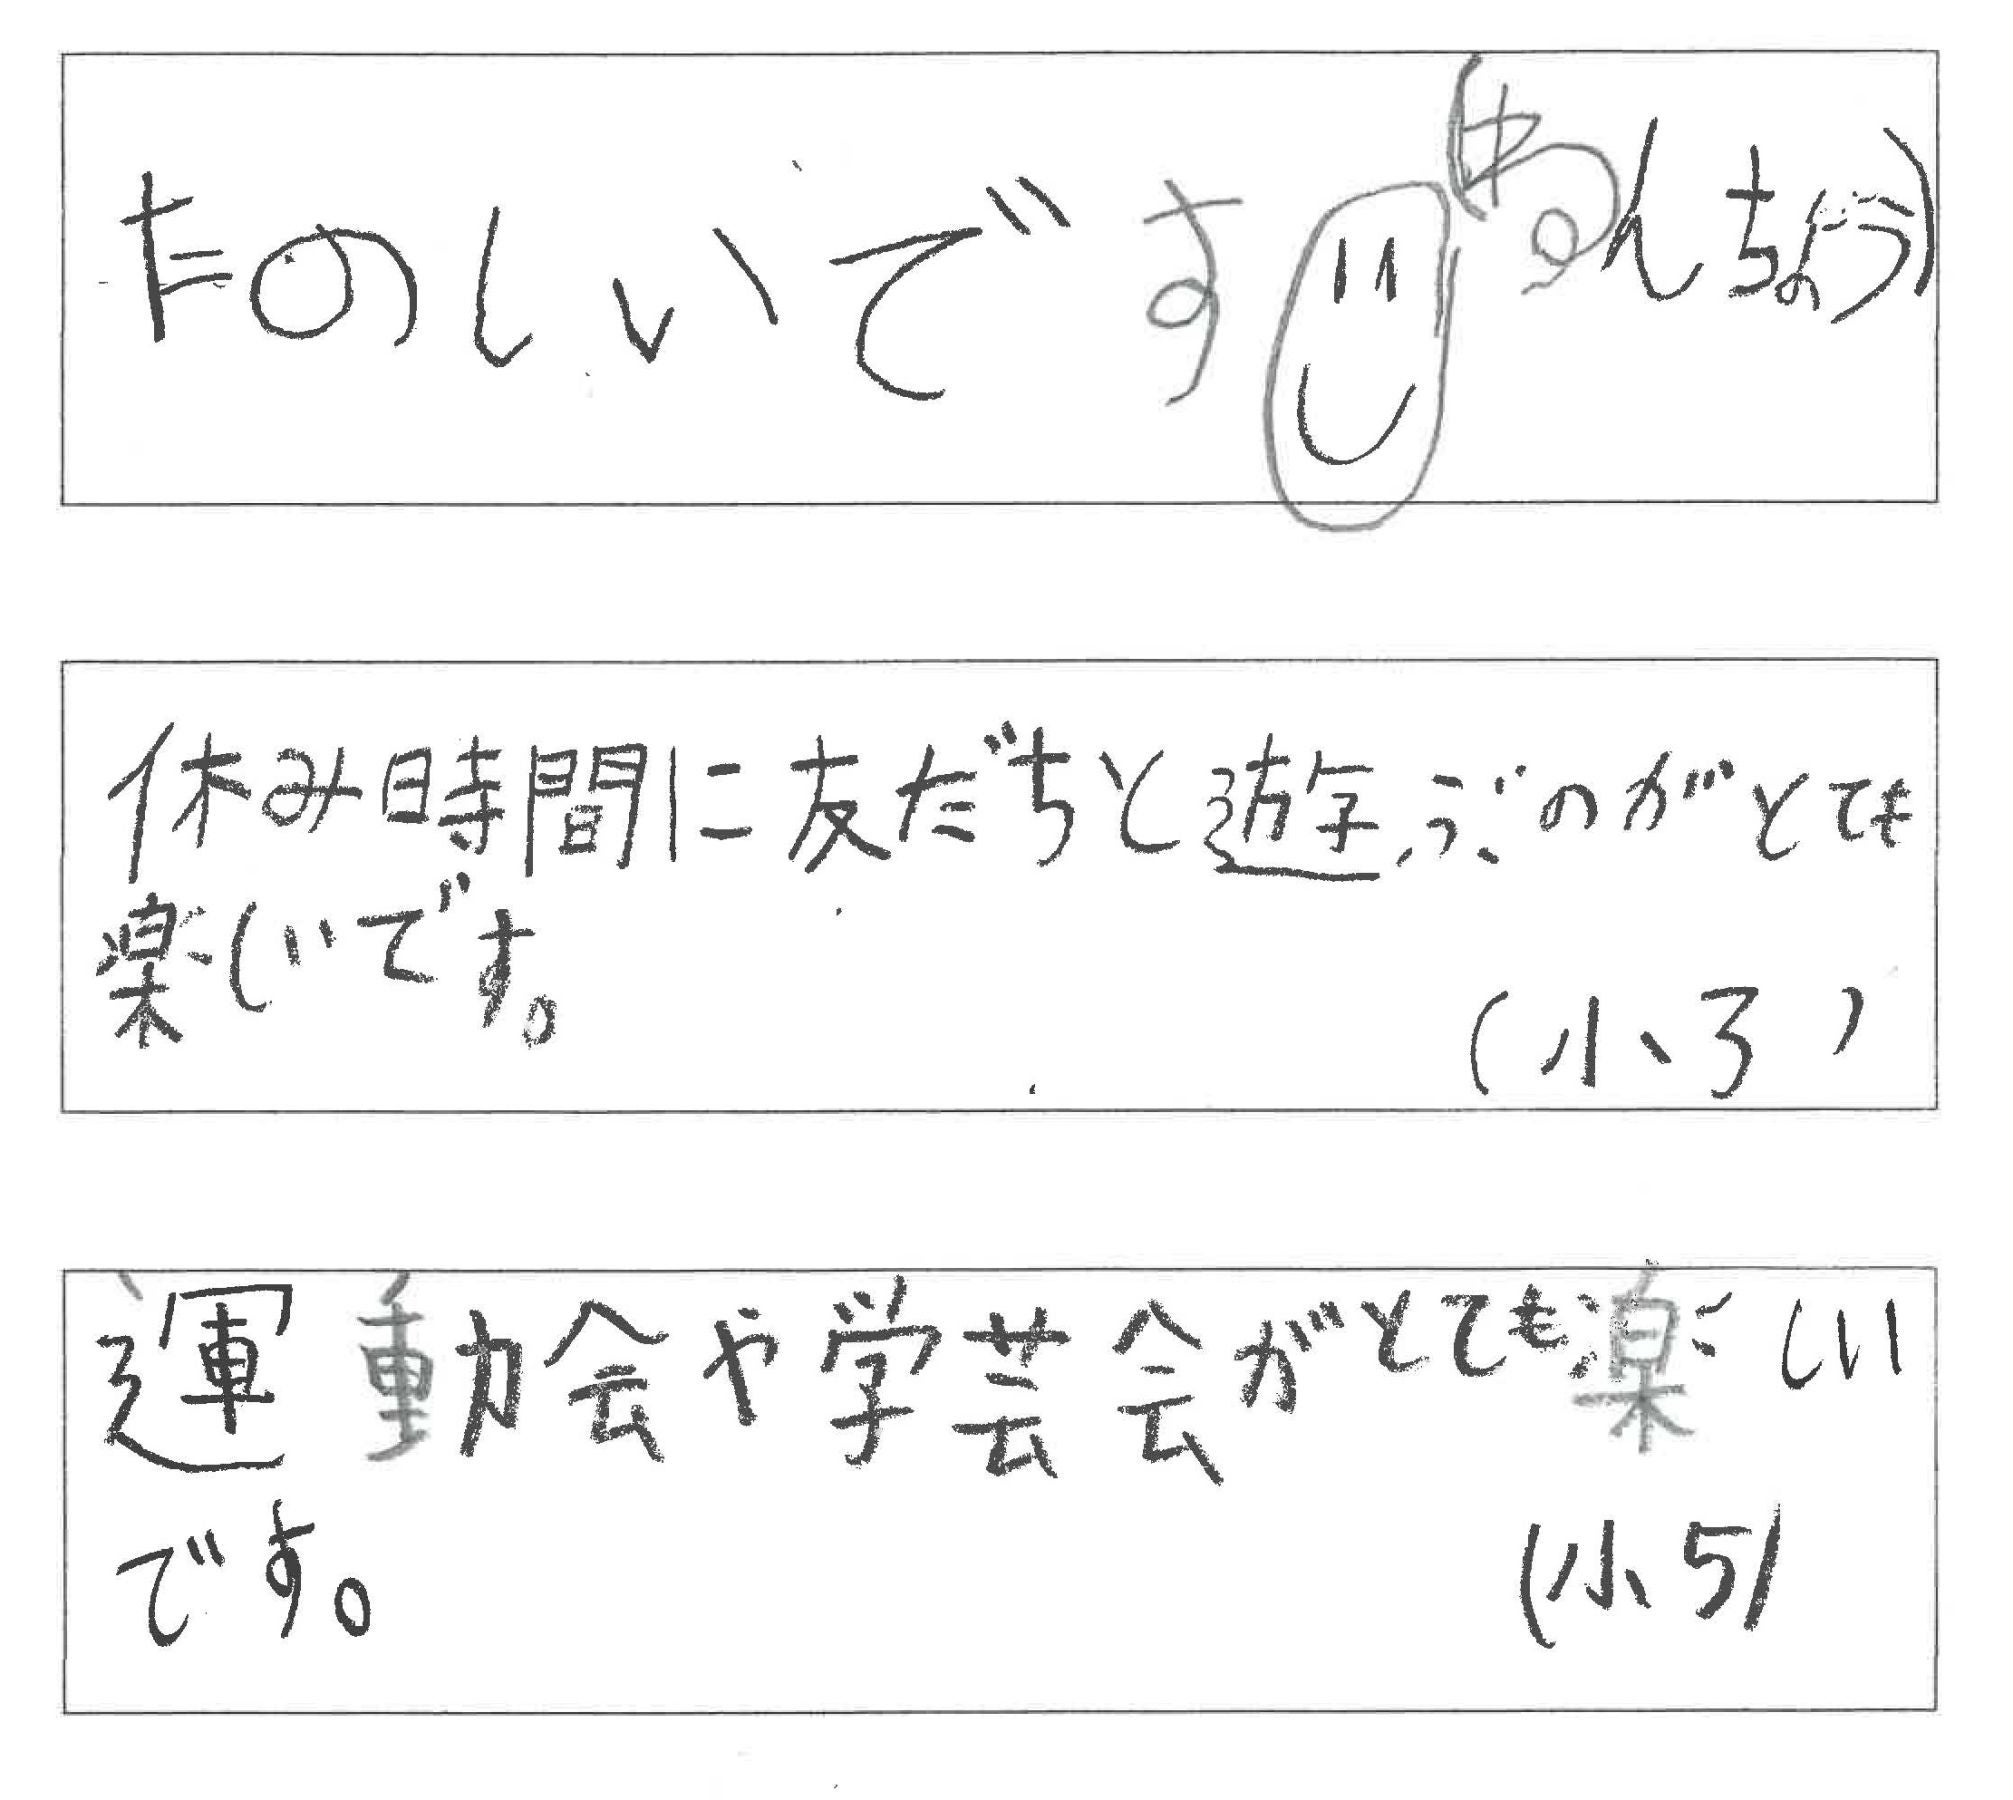 たのしいです (ねんちょう)
休み時間に友だちと遊ぶのがとても
楽しいです。
(小3)
運動会や学芸会がとても楽しい
です。 (小5)